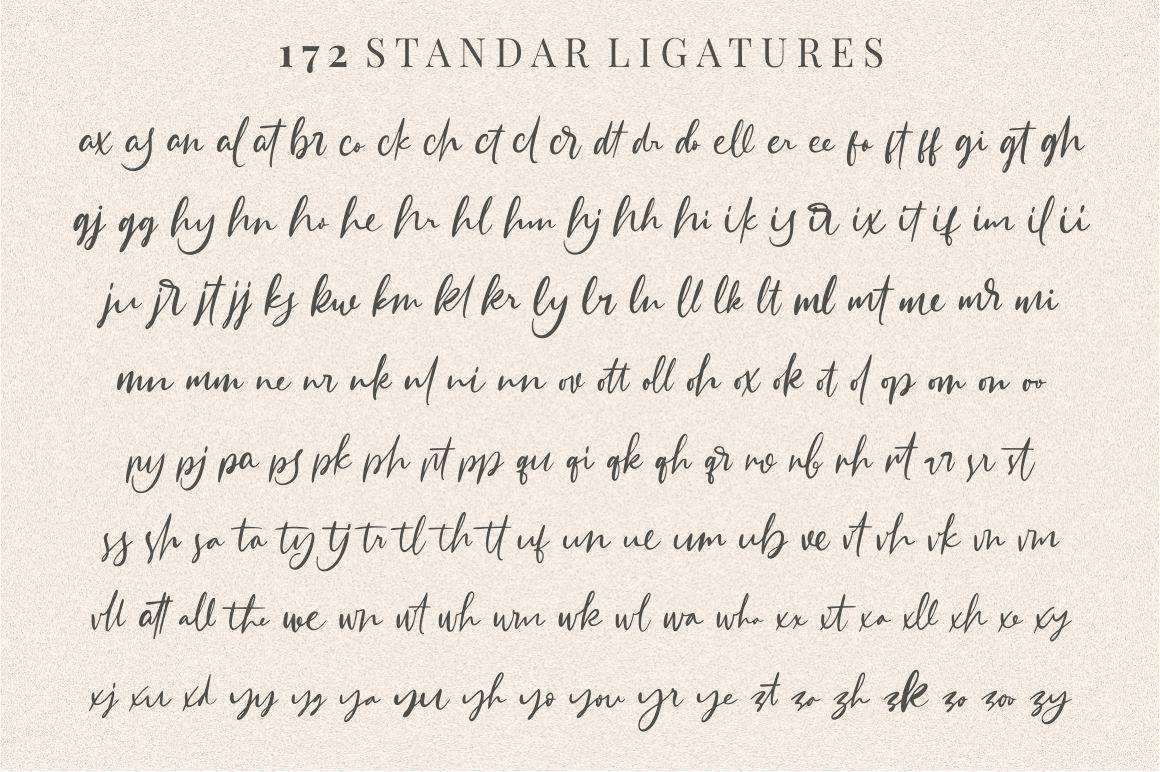 172 STANDAR LIGATURES
ax as an al at br co ck ch ct cl cr dt dr do ell er ee fo ft ff gi gt gh
gj gg hy hn ho he hr hl hm hj hh hi ik is ir ix it if im il ii
ju jr jt jj ks kw km kl kr ly lr ln ll lk lt ml mt me mr mi
mn mm ne nr nk nl ni nn ov ott oll oh ox ok ot ol op om on oo
py pj pa ps pk ph pt pp qu qi qk qh qr ro rb rh rt rr sr st
ss sh sa ta ty tj tr tl th tt uf un ue um ub ve vt vh vk vn vm
vll att all the we wn wt wh wm wk wl wa who xx xt xa xll xh xe xy
xj xu xd yy yg ya yu yh yo you yr ye zt za zh zk zo zoo zy